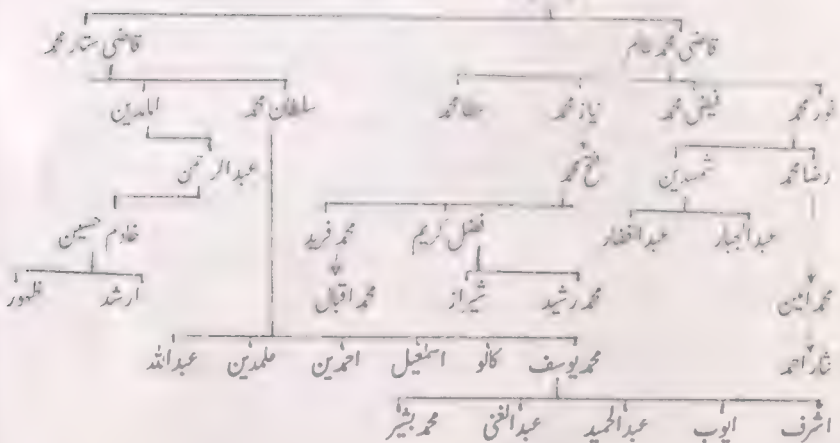 قاضی محمد عام قاضی ستار محمد
نور محمد فیض محمد نیاز محمد عطا محمد سلطان محمد امامدین
رضا محمد شمسدین فتح محمد عبدالرحمٰن
عبدالجبار عبدالغفار فضل کریم محمد فرید غلام حسین
محمد امین محمد رشید شیراز محمد اقبال ارشد ظہور
نثار احمد محمد یوسف کالو اسمٰعیل احمدین علمدین عبداللہ
اشرف ایوب عبدالحمید عبدالغنی محمد بشیر